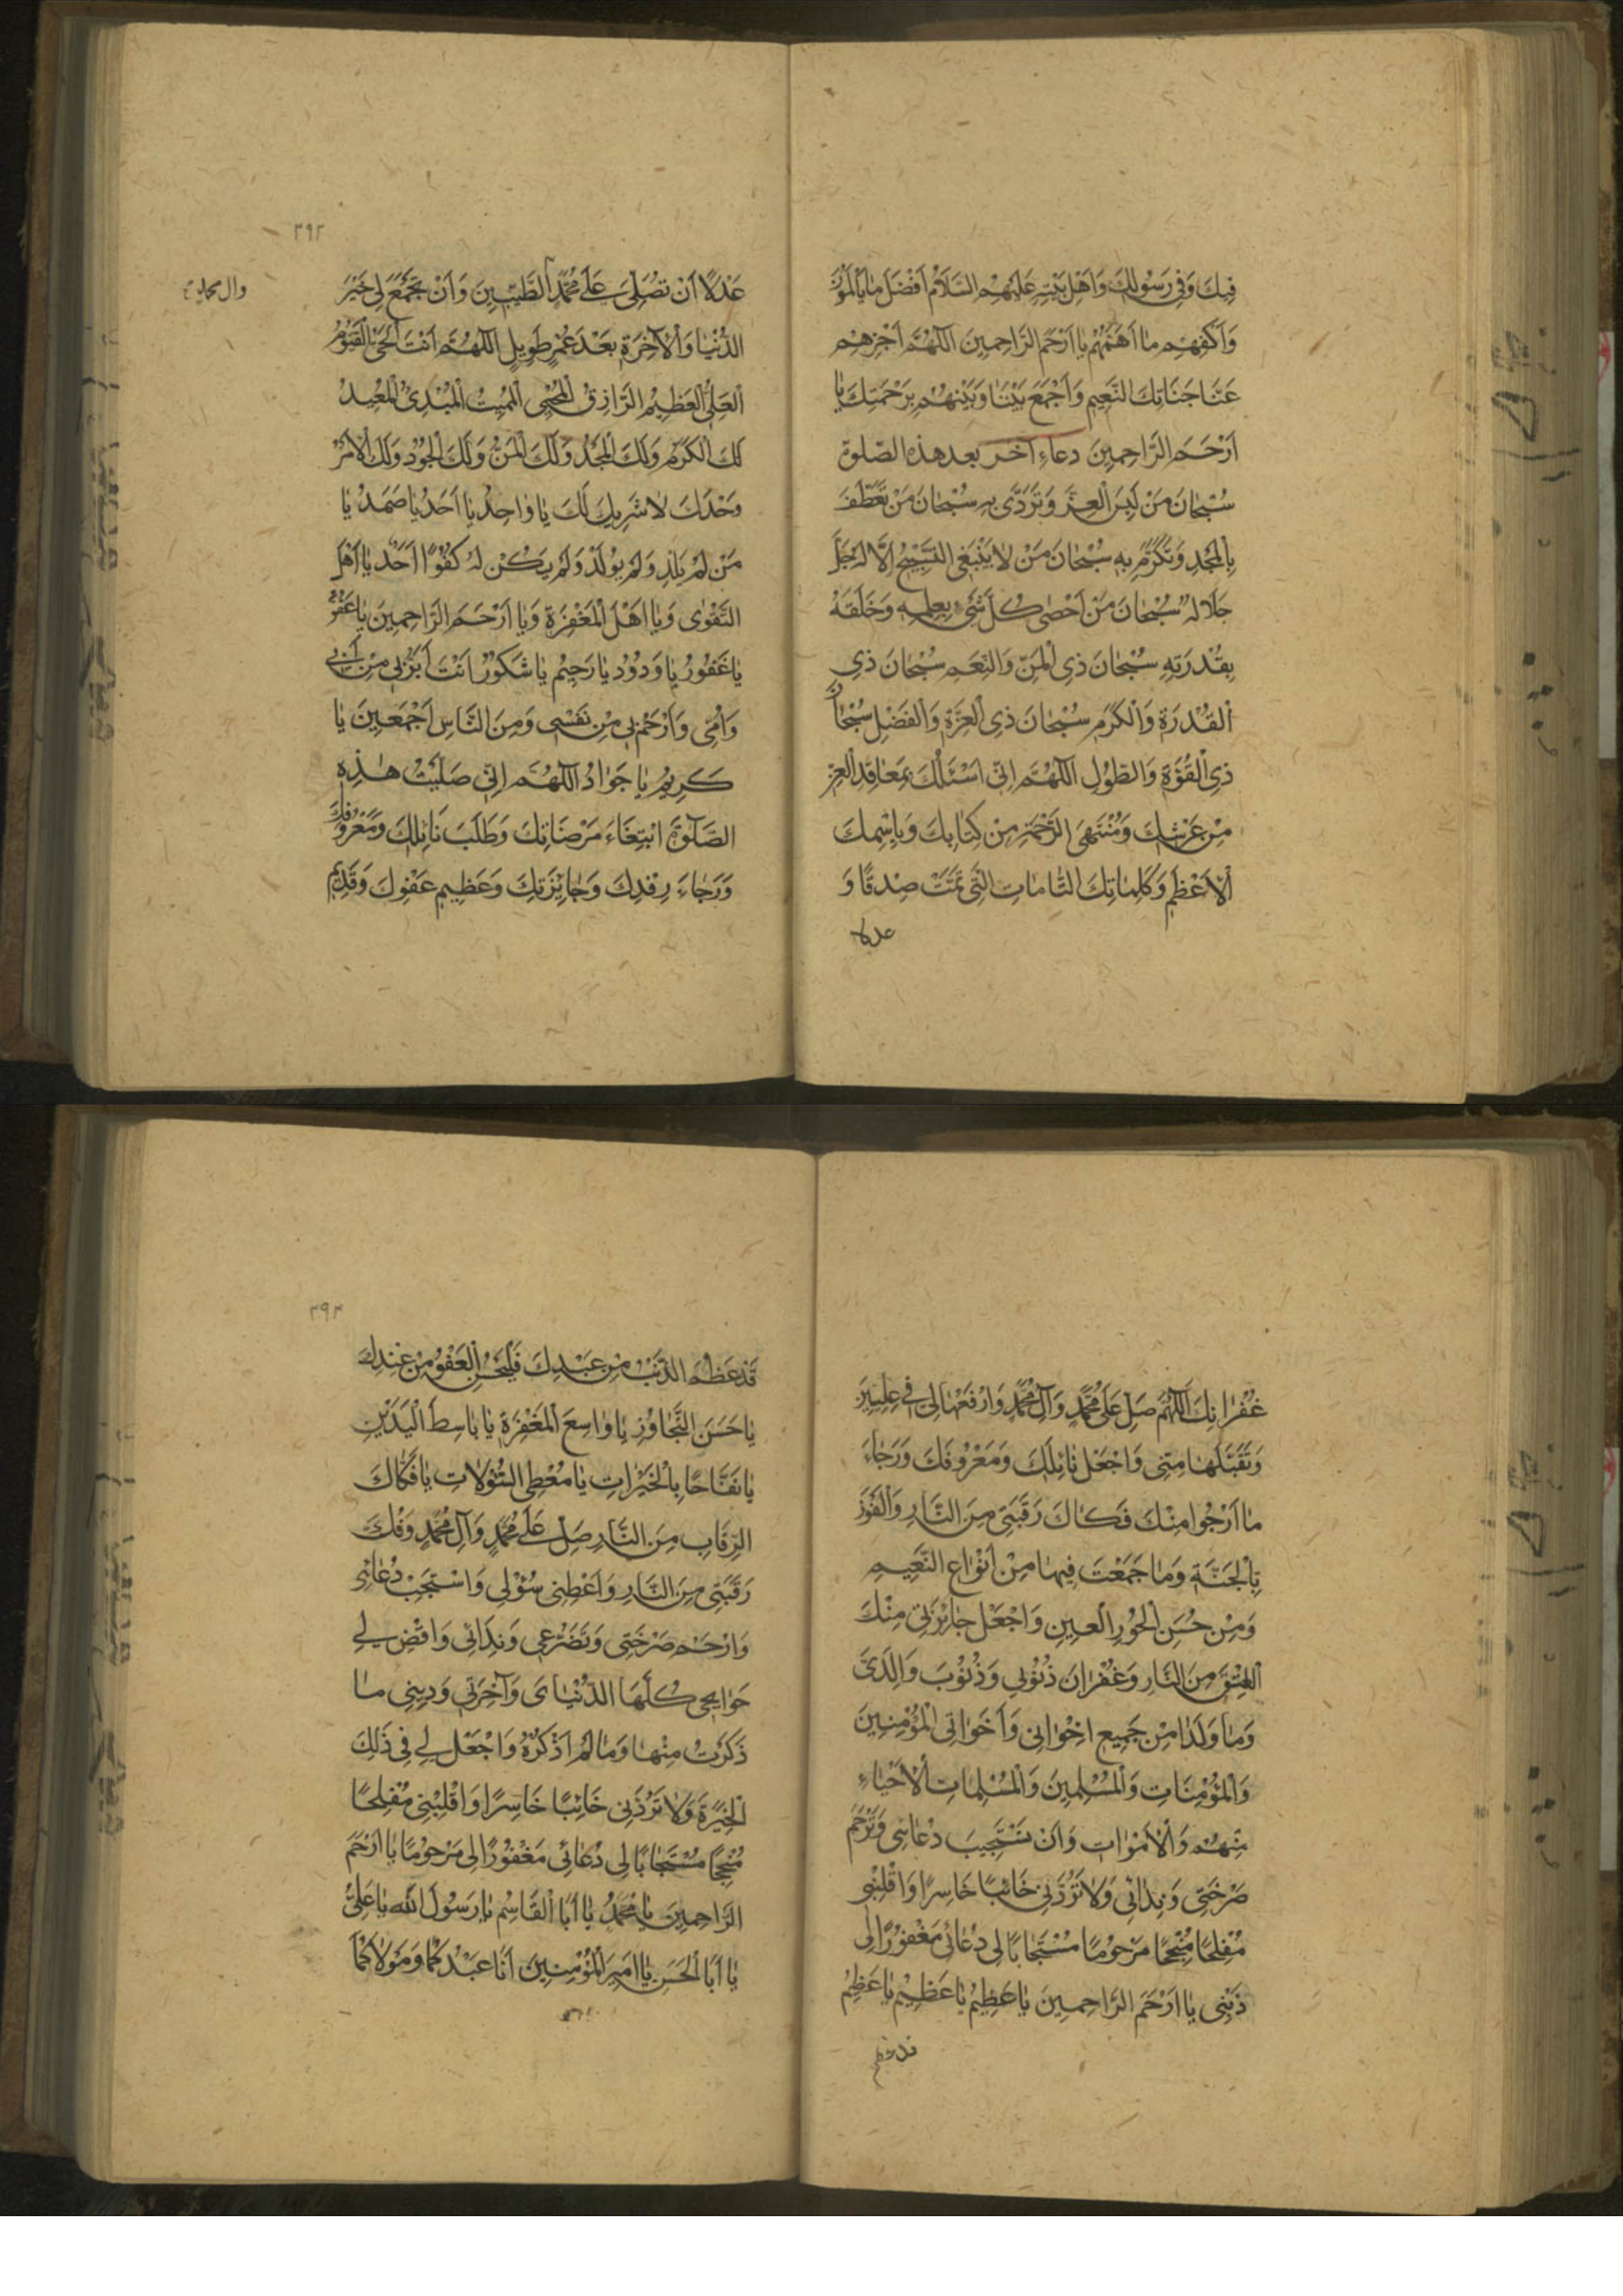 فِيكَ وَفِي رَسُولِكَ وَاَهْلِ بَيْتِهِ عَلَيْهِمُ السَّلَامُ اَفْضَلَ مَا يَأْمُلُونَ
وَاكْفِهِمْ مَا اَهَمَّهُمْ يَا اَرْحَمَ الرَّاحِمِينَ اَللّٰهُمَّ اَجْزِهِمْ
عَنَّا جَنَّاتِكَ النَّعِيمِ وَاَجْمَعْ بَيْنَنَا وَبَيْنَهُمْ بِرَحْمَتِكَ يَا
اَرْحَمَ الرَّاحِمِينَ دعاء آخر بعد هذه الصّلوة
سُبْحَانَ مَنْ لَبِسَ الْعِزَّ وَتَرَدَّى بِهِ سُبْحَانَ مَنْ تَعَطَّفَ
بِالْمَجْدِ وَتَكَرَّمَ بِهِ سُبْحَانَ مَنْ لَا يَنْبَغِي التَّسْبِيحُ اِلَّا لَهُ جَلَّ
جَلَالُهُ سُبْحَانَ مَنْ اَحْصَى كُلَّ شَيْءٍ بِعِلْمِهِ وَخَلَقَهُ
بِقُدْرَتِهِ سُبْحَانَ ذِي الْمَنِّ وَالنِّعَمِ سُبْحَانَ ذِي
الْقُدْرَةِ وَالْكَرَمِ سُبْحَانَ ذِي الْعِزَّةِ وَالْفَضْلِ سُبْحَانَ
ذِي الْقُوَّةِ وَالطَّوْلِ اَللّٰهُمَّ اِنِّي اَسْئَلُكَ بِمَعَاقِدِ الْعِزِّ
مِنْ عَرْشِكَ وَمُنْتَهَى الرَّحْمَةِ مِنْ كِتَابِكَ وَبِاسْمِكَ
الْاَعْظَمِ وَكَلِمَاتِكَ التَّامَاتِ الَّتِي تَمَّتْ صِدْقًا وَ
عدلا
٢٩٢
عَدْلًا اَنْ تُصَلِّيَ عَلَى مُحَمَّدٍ الطَّيِّبِينَ وَاَنْ تَجْمَعَ لِي خَيْرَ
وال محمد
الدُّنْيَا وَالْآخِرَةِ بَعْدَ عُمْرٍ طَوِيلٍ اَللّٰهُمَّ اَنْتَ الْحَيُّ الْقَيُّومُ
الْعَلِيُّ الْعَظِيمُ الرَّازِقُ الْمُحْيِي الْمُمِيتُ الْمُبْدِئُ الْمُعِيدُ
لَكَ الْكَرَمُ وَلَكَ الْمَجْدُ وَلَكَ الْمَنُّ وَلَكَ الْجُودُ وَلَكَ الْاَمْرُ
وَحْدَكَ لَا شَرِيكَ لَكَ يَا وَاحِدُ يَا اَحَدُ يَا صَمَدُ يَا
مَنْ لَمْ يَلِدْ وَلَمْ يُولَدْ وَلَمْ يَكُنْ لَهُ كُفُوًا اَحَدٌ يَا اَهْلَ
التَّقْوَى وَيَا اَهْلَ الْمَغْفِرَةِ وَيَا اَرْحَمَ الرَّاحِمِينَ يَا عَفُوُّ
يَا غَفُورُ يَا وَدُودُ يَا رَحِيمُ يَا شَكُورُ اَنْتَ اَبَرُّ بِي مِنْ اَبِي
وَاُمِّي وَاَرْحَمُ بِي مِنْ نَفْسِي وَمِنَ النَّاسِ اَجْمَعِينَ يَا
كَرِيمُ يَا جَوَادُ اَللّٰهُمَّ اِنِّي صَلَّيْتُ هٰذِهِ
الصَّلٰوةَ ابْتِغَاءَ مَرْضَاتِكَ وَطَلَبَ نَائِلِكَ وَمَعْرُوفِكَ
وَرَجَاءَ رِفْدِكَ وَجَائِزَتِكَ وَعَظِيمِ عَفْوِكَ وَقَدِيمِ
غُفْرَانِكَ اَللّٰهُمَّ صَلِّ عَلَى مُحَمَّدٍ وَآلِ مُحَمَّدٍ وَارْفَعْهَا لِي فِي عِلِّيِّينَ
وَتَقَبَّلْهَا مِنِّي وَاجْعَلْ نَائِلَكَ وَمَعْرُوفَكَ وَرَجَاءَ
مَا اَرْجُوا مِنْكَ فَكَاكَ رَقَبَتِي مِنَ النَّارِ وَالْفَوْزَ
بِالْجَنَّةِ وَمَا جَمَعْتَ فِيهَا مِنْ اَنْوَاعِ النَّعِيمِ
وَمِنْ حُسْنِ الْحُورِ الْعِينِ وَاجْعَلْ جَائِزَتِي مِنْكَ
الْعِتْقَ مِنَ النَّارِ وَغُفْرَانَ ذُنُوبِي وَذُنُوبَ وَالِدَيَّ
وَمَا وَلَدَا مِنْ جَمِيعِ اِخْوَانِي وَاَخَوَاتِي الْمُؤْمِنِينَ
وَالْمُؤْمِنَاتِ وَالْمُسْلِمِينَ وَالْمُسْلِمَاتِ الْاَحْيَاءِ
مِنْهُمْ وَالْاَمْوَاتِ وَاَنْ تَسْتَجِيبَ دُعَائِي وَتَرْحَمَ
صَرْخَتِي وَنِدَائِي وَلَا تَرُدَّنِي خَائِبًا خَاسِرًا وَاقْلِبْنِي
مُفْلِحًا مُنْجِحًا مَرْحُومًا مُسْتَجَابًا لِي دُعَائِي مَغْفُورًا لِي
ذَنْبِي يَا اَرْحَمَ الرَّاحِمِينَ يَا عَظِيمُ يَا عَظِيمُ يَا عَظِيمُ
قد عظم
٢٩٣
قَدْ عَظُمَ الذَّنْبُ مِنْ عَبْدِكَ فَلْيَحْسُنِ الْعَفْوُ مِنْ عِنْدِكَ
يَا حَسَنَ التَّجَاوُزِ يَا وَاسِعَ الْمَغْفِرَةِ يَا بَاسِطَ الْيَدَيْنِ
يَا نَفَّاحًا بِالْخَيْرَاتِ يَا مُعْطِيَ السُّؤْلَاتِ يَا فَكَّاكَ
الرِّقَابِ مِنَ النَّارِ صَلِّ عَلَى مُحَمَّدٍ وَآلِ مُحَمَّدٍ وَفُكَّ
رَقَبَتِي مِنَ النَّارِ وَاَعْطِنِي سُؤْلِي وَاسْتَجِبْ دُعَائِي
وَارْحَمْ صَرْخَتِي وَتَضَرُّعِي وَنِدَائِي وَاقْضِ لِي
حَوَائِجِي كُلَّهَا لِدُنْيَايَ وَآخِرَتِي وَدِينِي مَا
ذَكَرْتُ مِنْهَا وَمَا لَمْ اَذْكُرْهُ وَاجْعَلْ لِي فِي ذَلِكَ
الْخِيَرَةَ وَلَا تَرُدَّنِي خَائِبًا خَاسِرًا وَاقْلِبْنِي مُفْلِحًا
مُنْجِحًا مُسْتَجَابًا لِي دُعَائِي مَغْفُورًا لِي مَرْحُومًا يَا اَرْحَمَ
الرَّاحِمِينَ يَا مُحَمَّدُ يَا اَبَا الْقَاسِمِ يَا رَسُولَ اللّٰهِ يَا عَلِيُّ
يَا اَبَا الْحَسَنِ يَا اَمِيرَ الْمُؤْمِنِينَ اَنَا عَبْدُكُمَا وَمَوْلَاكُمَا